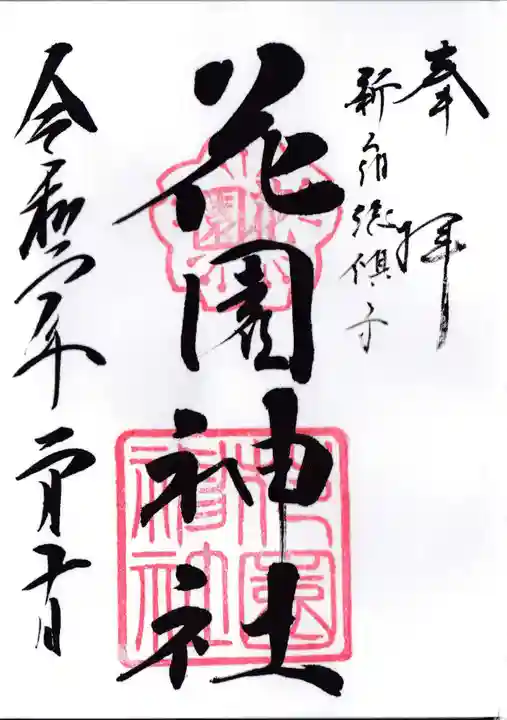 奉拝
新宿総鎮守
花園神社
令和二年二月十日
花園神社